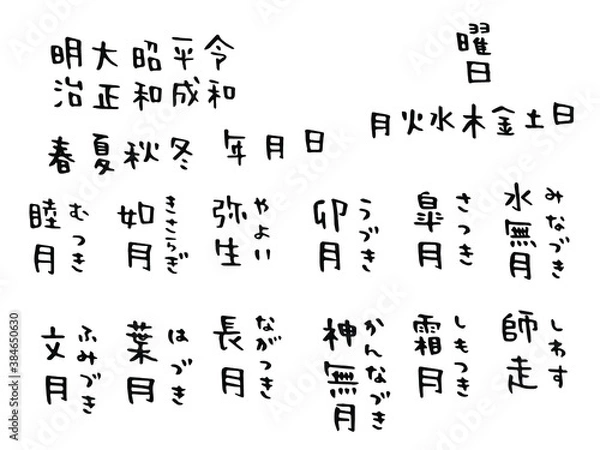 明治
大正
昭和
平成
令和
曜日
月火水木金土日
春夏秋冬 年月日
睦月 むつき
如月 きさらぎ
弥生 やよい
卯月 うづき
皐月 さつき
水無月 みなづき
文月 ふみづき
葉月 はづき
長月 ながつき
神無月 かんなづき
霜月 しもつき
師走 しわす
Adobe Stock | #384650630